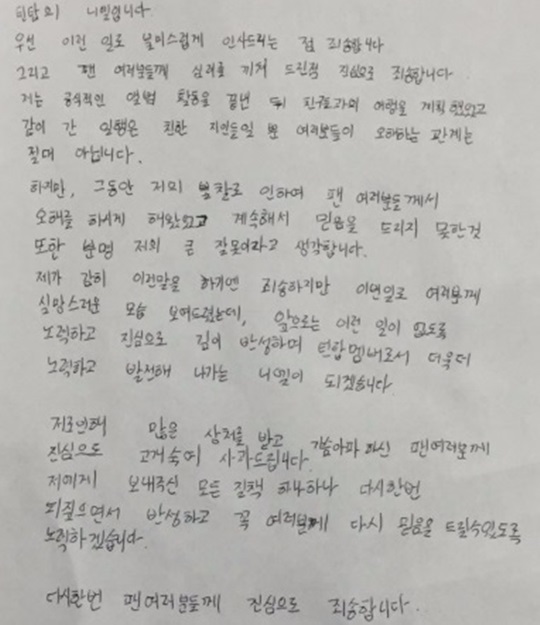 틴탑의 니엘입니다.
우선 이런 일로 불미스럽게 인사드리는 점 죄송합니다
그리고 팬 여러분들께 심려를 끼쳐 드린점 진심으로 죄송합니다
저는 공식적인 앨범 활동을 끝낸 뒤 친구들과의 여행을 계획했었고
같이 간 일행은 친한 지인들일 뿐 여러분들이 오해하는 관계는
절대 아닙니다.
하지만, 그동안 저의 불찰로 인하여 팬 여러분들께서
오해를 하시게 해왔었고 계속해서 믿음을 드리지 못한것
또한 분명 저의 큰 잘못이라고 생각합니다.
제가 감히 이런말을 하기엔 죄송하지만 이번일로 여러분께
실망스러운 모습 보여드렸는데, 앞으로는 이런 일이 없도록
노력하고 진심으로 깊이 반성하며 틴탑멤버로서 더욱더
노력하고 발전해 나가는 니엘이 되겠습니다
저로인해 많은 상처를 받고 가슴아파 하신 팬여러분께
진심으로 고개숙여 사과드립니다.
저에게 보내주신 모든 질책 하나하나 다시한번
되짚으면서 반성하고 꼭 여러분께 다시 믿음을 드릴수있도록
노력하겠습니다.
다시한번 팬여러분들께 진심으로 죄송합니다.